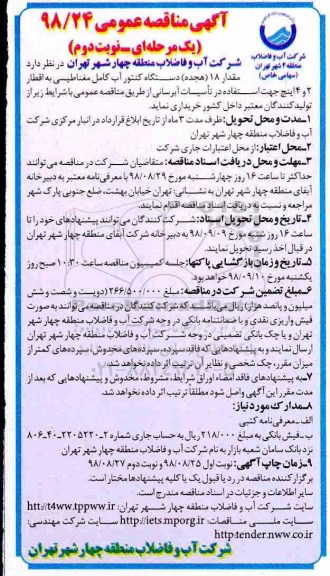 آگهی مناقصه عمومی ۹۸/۲۴
(یک مرحله‌ای ـ نوبت دوم)
شرکت آب و فاضلاب
منطقه ۴ شهر تهران
(سهامی خاص)
شرکت آب و فاضلاب منطقه چهار شهر تهران در نظر دارد
مقدار ۱۸ (هجده) دستگاه کنتور آب کامل مغناطیسی به اقطار
۲ و ۴ اینچ جهت استفاده در تأسیسات آبرسانی از طریق مناقصه عمومی با شرایط زیر از
تولیدکنندگان معتبر داخل کشور خریداری نماید.
۱ـ مدت و محل تحویل: ظرف مدت ۳ ماه از تاریخ ابلاغ قرارداد در انبار مرکزی شرکت
آب و فاضلاب منطقه چهار شهر تهران
۲ـ محل اعتبار: از محل اعتبارات جاری شرکت
۳ـ مهلت و محل دریافت اسناد مناقصه: متقاضیان شرکت در مناقصه می‌توانند
حداکثر تا ساعت ۱۶ روز چهارشنبه مورخ ۹۸/۰۸/۲۹ با معرفی‌نامه معتبر به دبیرخانه
آبفای منطقه چهار شهر تهران به نشانی: تهران خیابان بهشت، ضلع جنوبی پارک شهر
مراجعه و نسبت به دریافت اسناد مناقصه اقدام نمایند.
۴ـ تاریخ و محل تحویل اسناد: شرکت‌کنندگان می‌توانند پیشنهادهای خود را تا
ساعت ۱۶ روز شنبه مورخ ۹۸/۰۹/۰۹ به دبیرخانه شرکت آبفای منطقه چهار شهر تهران
در قبال اخذ رسید تحویل نمایند.
۵ـ تاریخ و زمان بازگشایی پاکتها: جلسه کمیسیون مناقصه ساعت ۱۰:۳۰ صبح روز
یکشنبه مورخ ۹۸/۰۹/۱۰ خواهد بود.
۶ـ مبلغ تضمین شرکت در مناقصه: مبلغ ۲۶۶/۵۰۰/۰۰۰ (دویست و شصت و شش
میلیون و پانصد هزار) ریال می‌باشد که شرکت کنندگان در مناقصه می‌توانند به صورت
فیش واریزی نقدی و یا ضمانتنامه بانکی در وجه شرکت آب و فاضلاب منطقه چهار شهر
تهران و یا چک بانکی تضمینی در وجه شرکت آب و فاضلاب منطقه چهار شهر تهران
ارسال نمایند و به پیشنهادهایی که فاقد سپرده، سپرده‌های مخدوش، سپرده‌های کمتر از
میزان مقرر، چک شخصی و نظایر آن ترتیب اثر داده نخواهد شد.
۷ـ به پیشنهادهای فاقد امضاء اوراق شرایط، مشروط، مخدوش و پیشنهادهایی که بعد از
مدت مقرر این آگهی واصل شود مطلقاً ترتیب اثر داده نخواهد شد.
۸ـ مدارک مورد نیاز:
الف ـ معرفی‌نامه کتبی
ب ـ فیش بانکی به مبلغ ۲۱۸/۰۰۰ ریال به حساب جاری شماره ۲ـ۲۲۰۵۲۲۰ـ۴۰ـ۸۰۶
نزد بانک سامان شعبه بازار به نام شرکت آب و فاضلاب منطقه چهار شهر تهران
۹ـ زمان چاپ آگهی: نوبت اول ۹۸/۰۸/۲۵ و نوبت دوم ۹۸/۰۸/۲۷
برگزارکننده مناقصه در رد یا قبول یک یا کلیه پیشنهادها مختار است.
سایر اطلاعات و جزئیات در اسناد مناقصه مندرج است.
سایت شرکت آب و فاضلاب منطقه چهار شهر تهران: htt://t4ww.tppww.ir
سایت ملی مناقصات: http://iets.mporg.ir سایت شرکت مهندسی:
http:tender.nww.co.ir
شرکت آب و فاضلاب منطقه چهار شهر تهران